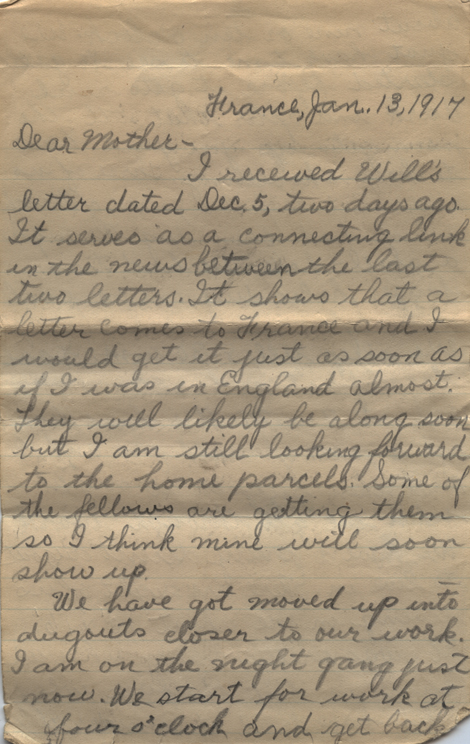 France, Jan. 13, 1917
Dear Mother-
I received Will's
letter dated Dec. 5, two days ago.
It serves as a connecting link
in the news between the last
two letters. It shows that a
letter comes to France and I
would get it just as soon as
if I was in England almost.
They will likely be along soon
but I am still looking forward
to the home parcels. Some of
the fellows are getting them
so I think mine will soon
show up.
We have got moved up into
dugouts closer to our work.
I am on the night gang just
now. We start for work at
four o'clock and get back